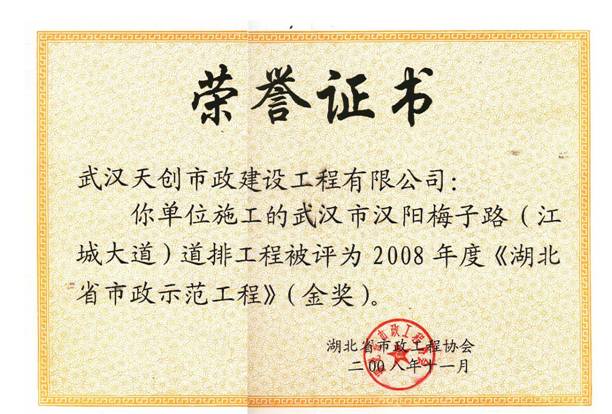 荣誉证书
武汉天创市政建设工程有限公司：
你单位施工的武汉市汉阳梅子路（江
城大道）道排工程被评为 2008 年度《湖北
省市政示范工程》（金奖）。
湖北省市政工程协会
二00八年十一月
湖北省市政工程协会